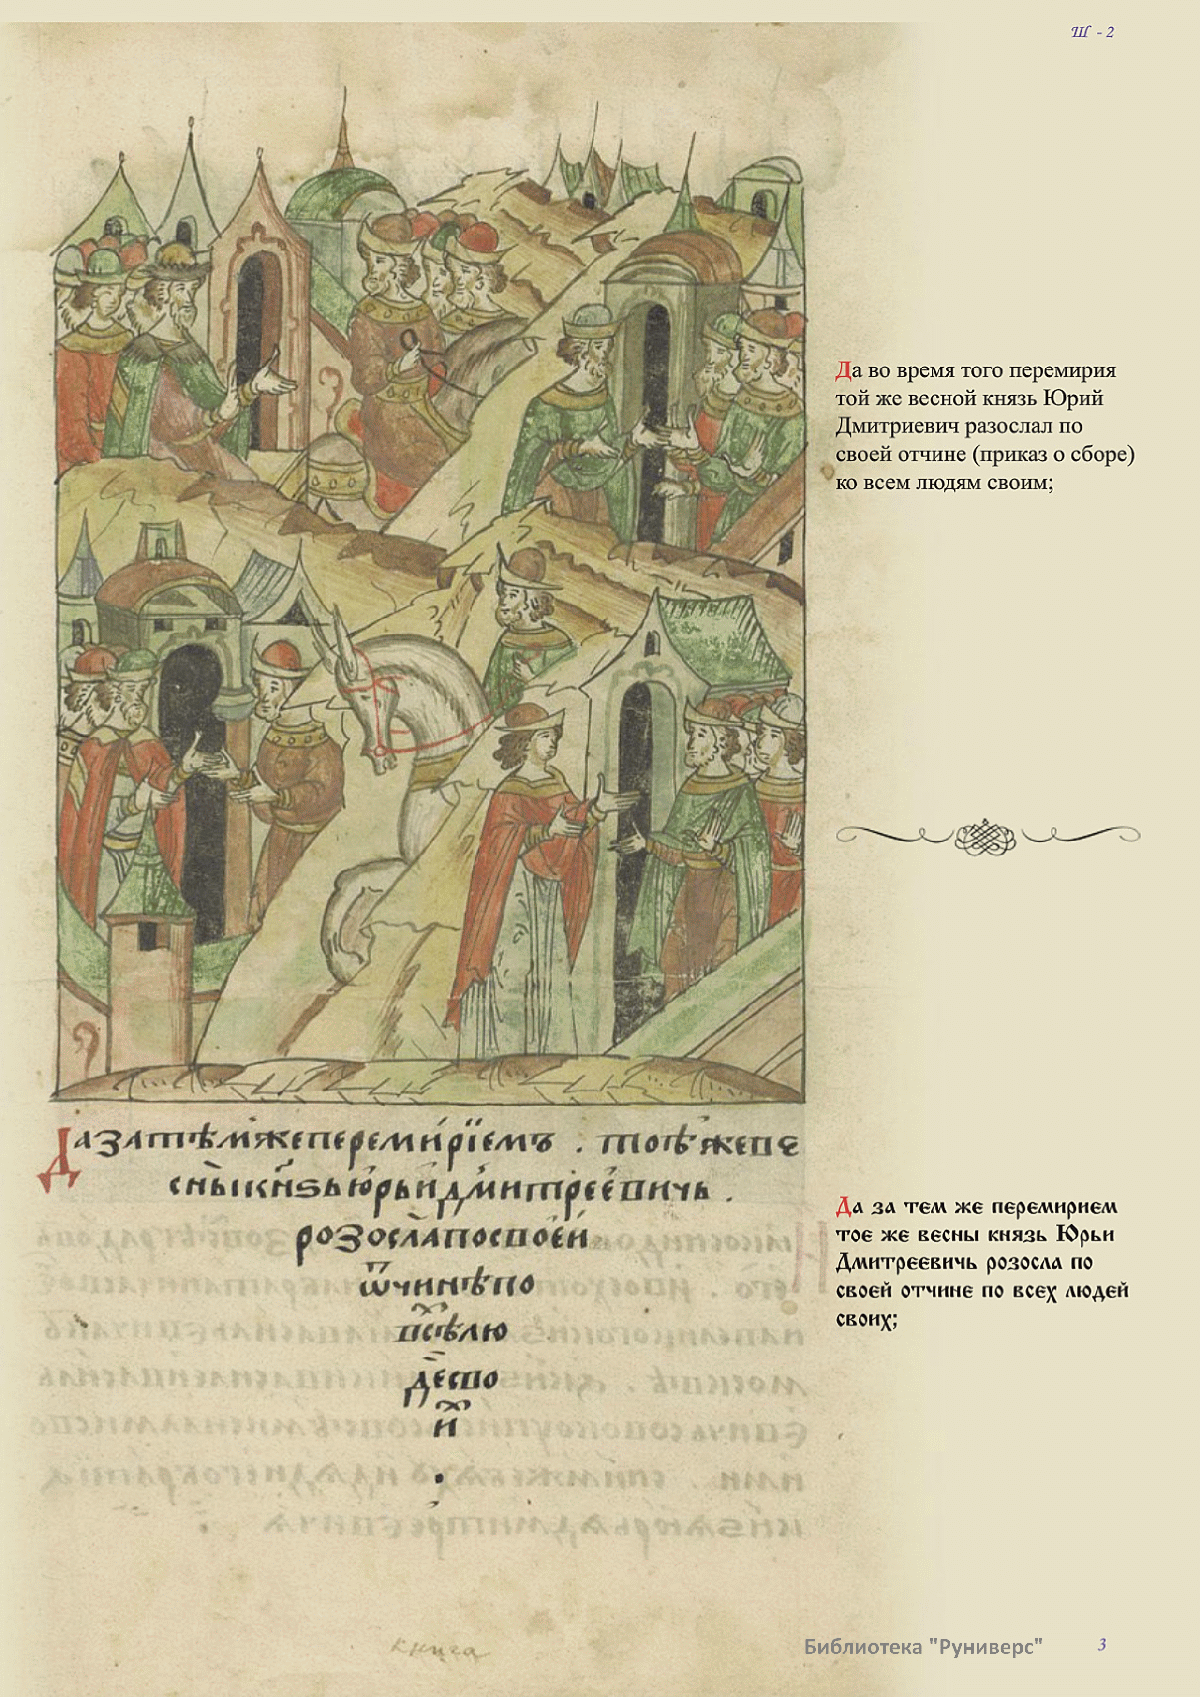 Ш - 2
Да во время того перемирия
той же весной князь Юрий
Дмитриевич разослал по
своей отчине (приказ о сборе)
ко всем людям своим;
Да за тѣм же перемирїемъ . тоѣ же ве
сны кн҃зь юрьи дмитрѐевичь .
розосла по своеи
ѿчинѣ по
всѣⷯ лю
деи сво
иⷯ
.
Да за тем же перемирием
тое же весны князь Юрьи
Дмитреевичь розосла по
своей отчине по всех людей
своих;
книга
Библиотека "Руниверс"
3